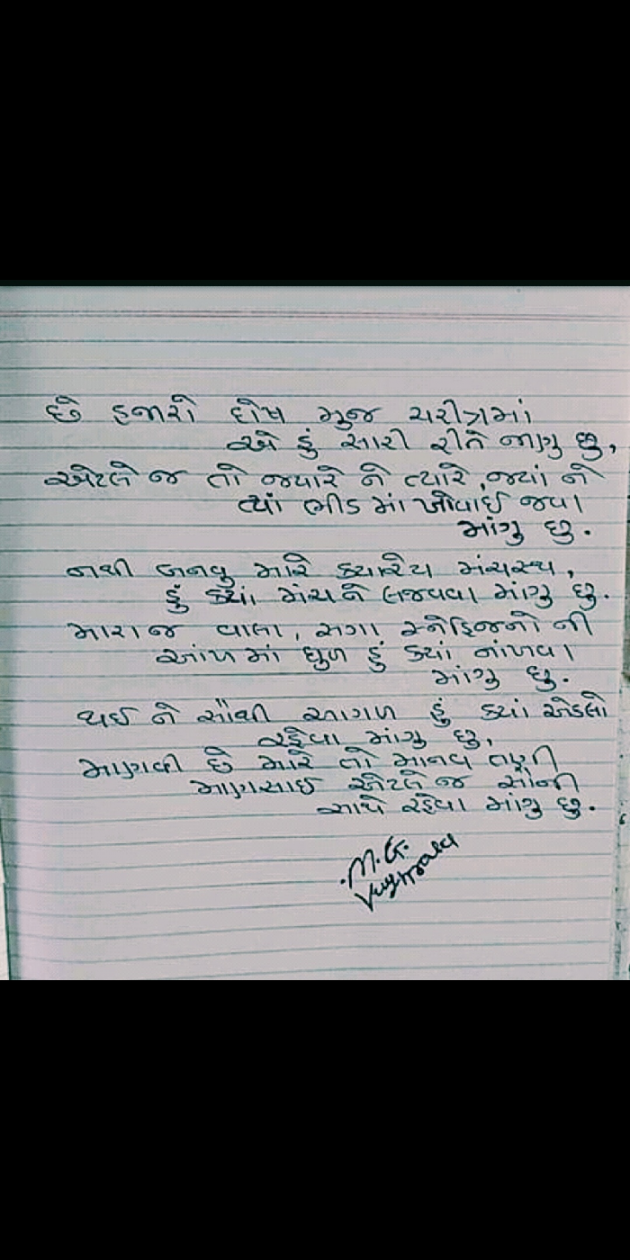 છે હજારો દોષ મુજ ચરીત્રમાં
એ હું સારી રીતે જાણુ છુ,
એટલે જ તો જ્યારે ને ત્યારે, જ્યાં ને
ત્યાં ભીડ માં ખોવાઈ જવા
માંગુ છુ.
નથી બનવુ મારે ક્યારેય મંચસ્થ,
હું ક્યાં મંચ ને લજવવા માંગુ છુ.
મારા જ વાલા, સગા સ્નેહિજનો ની
આંખ માં ધુળ હું ક્યાં નાંખવા
માંગુ છુ.
થઈ ને સૌથી આગળ હું ક્યાં એકલો
રહેવા માંગુ છુ,
માણવી છે મારે તો માનવ તણી
માણસાઈ એટલે જ સૌની
સાથે રહેવા માંગુ છુ.
M.G.